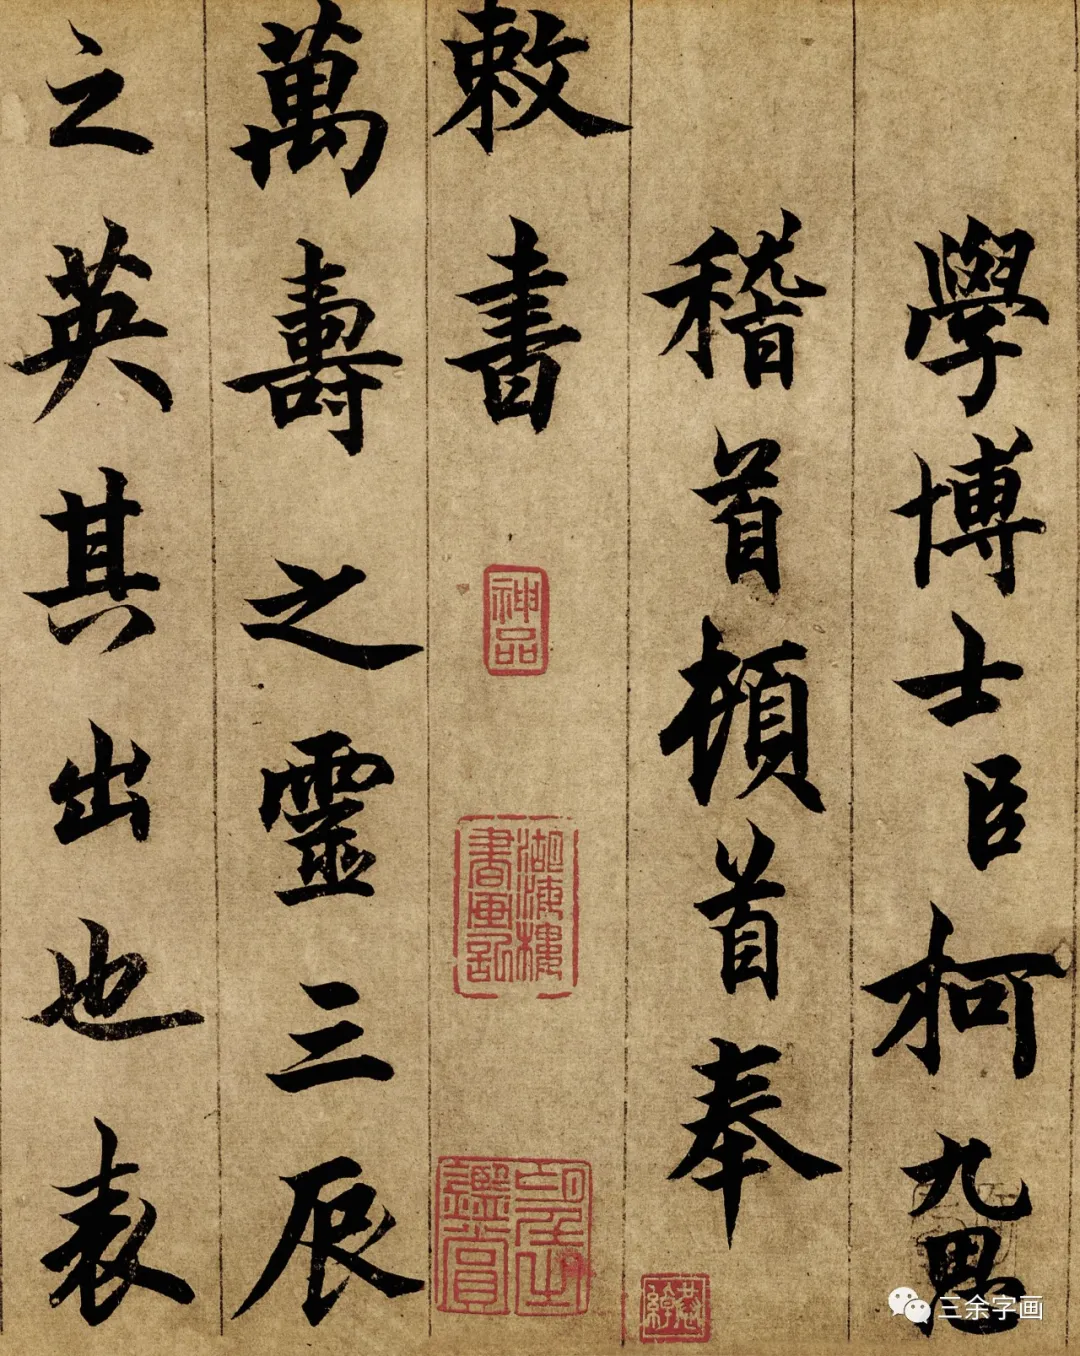 學博士臣柯九思
稽首頓首奉
敕書
神品
湖海樓
書畫記
萬壽之靈三辰
之英其出也表
三余字画